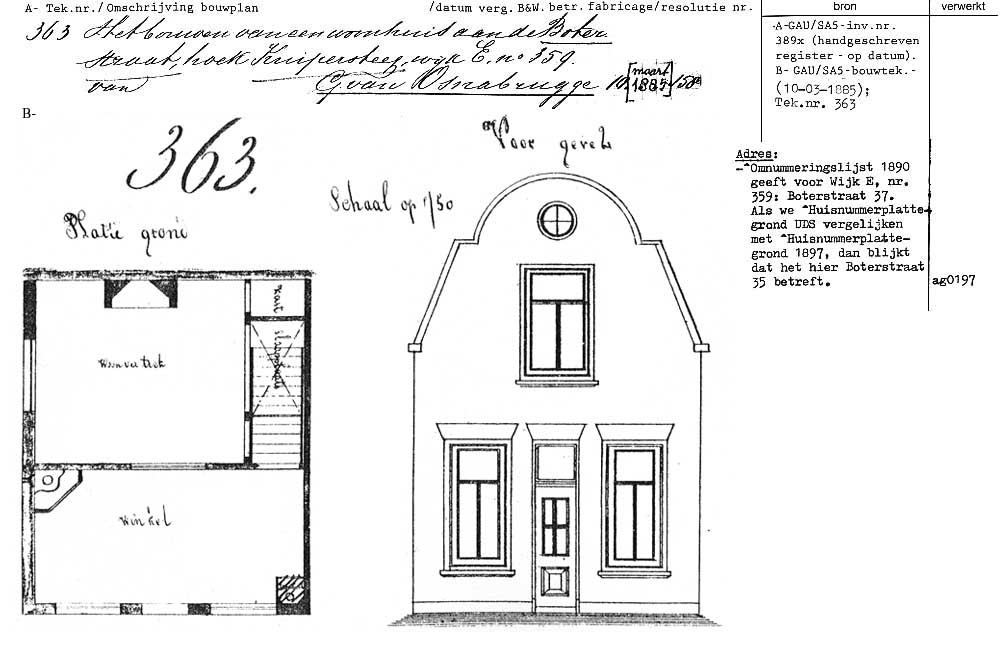 A- Tek.nr./Omschrijving bouwplan /datum verg. B&W. betr. fabricage/resolutie nr. bron verwerkt
363 Het bouwen van een woonhuis aan de Boter
straat, hoek Kuipersteeg, wyk E. no 359.
van G. van Osnabrugge 10 [maart 1885] /50
-A-GAU/SA5-inv.nr.
389x (handgeschreven
register - op datum).
B- GAU/SA5-bouwtek.-
(10-03-1885);
Tek.nr. 363
B-
363.
Voor gevel
Schaal op 1/50
Platte grond
Kast
woonvertrek
winkel
Adres:
-^Omnummeringslijst 1890
geeft voor Wijk E, nr.
359: Boterstraat 37.
Als we ^Huisnummerplatte-
grond UDS vergelijken
met ^Huisnummerplatte-
grond 1897, dan blijkt
dat het hier Boterstraat
35 betreft.
ag0197